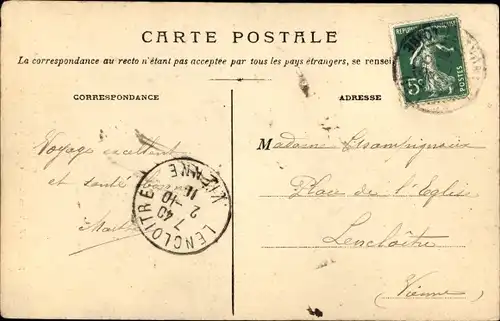 CARTE POSTALE
La correspondance au recto n'étant pas acceptée par tous les pays étrangers, se rensei
CORRESPONDANCE
ADRESSE
REPUBLIQUE FRANÇAISE
5c
POSTES
Voyage excellent
et santé
LENCLOITRE
VIENNE
7 40
2 -10
11
Madame
Place de l'Eglise
Lencloître
(Vienne)